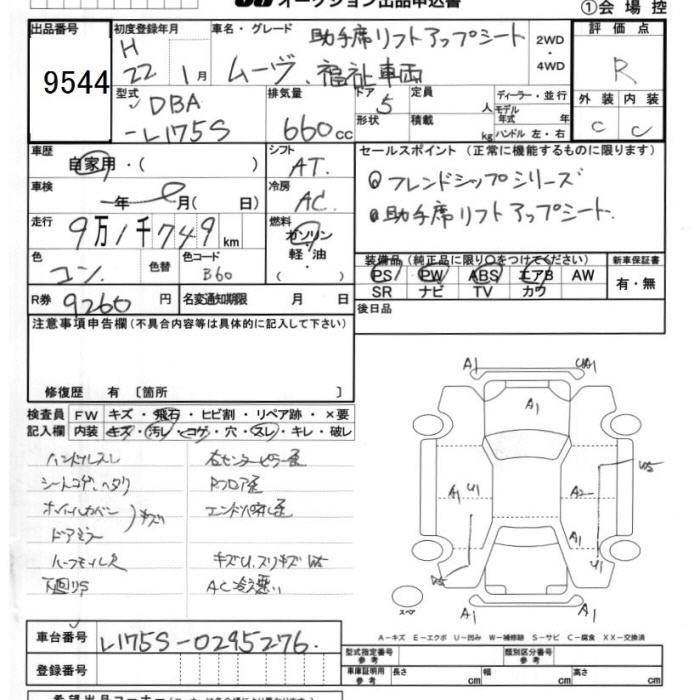 オークション出品申込書
①会場控
出品番号 9544
初度登録年月 H 22 1月
車名・グレード 助手席リフトアップシート
ムーヴ 福祉車両
2WD・4WD
評価点 R
外装 C 内装 C
型式 DBA-L175S
排気量 660cc
ドア 5
形状
定員 人
積載 kg
ディーラー・並行
モデル年式 年
ハンドル 左・右
車歴 自家用・( )
シフト AT
車検 年 月( 日)
冷房 AC
走行 9万1千749km
燃料 ガソリン・軽油・( )
色 コン
色替
色コード B60
R券 9260円
名変通知期限 月 日
セールスポイント (正常に機能するものに限ります)
◎フレンドシップシリーズ
◎助手席リフトアップシート
装備品 (純正品に限り○をつけてください)
PS PW ABS エアB AW
SR ナビ TV カワ
新車保証書 有・無
後日品
注意事項申告欄(不具合内容等は具体的に記入して下さい)
修復歴 有 〔箇所 〕
検査員記入欄
FW キズ・飛石・ヒビ割・リペア跡・×要
内装 キズ・汚レ・コゲ・穴・スレ・キレ・破レ
ハンドルスレ
シートコゲ、ヘタリ
ホイールカバー
ドアミラー
キズ
下回りS
右センターピラー歪
Rフロア歪
キズU、スリキズ
AC冷え悪い
A1
A1
A1
U1
A1
A2
A1
U1
A1
A1
スペア
A−キズ E−エクボ U−凹み W−補修跡 S−サビ C−腐食 XX−交換済
車台番号 L175S-0295276
登録番号
型式指定番号 参考
類別区分番号 参考
車庫証明用 参考 長さ cm 幅 cm 高さ cm
希望出品コーナー